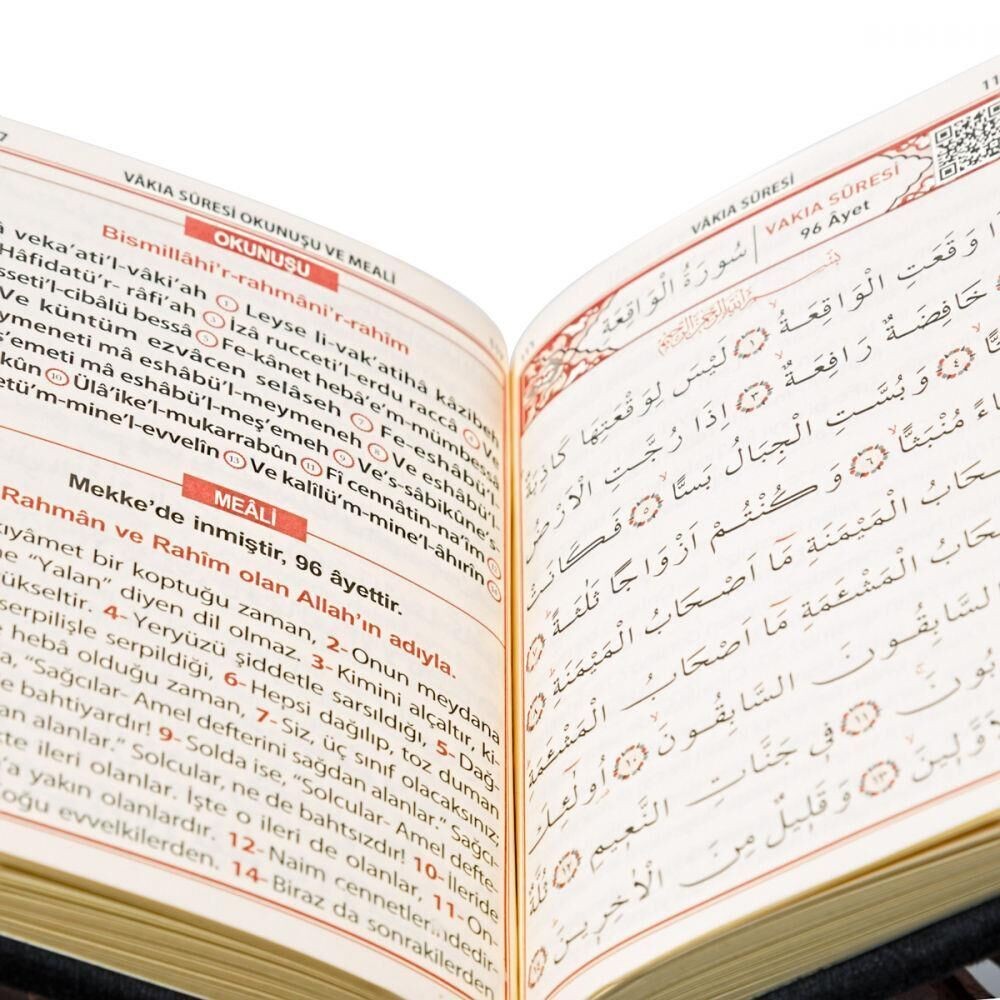 7
VÂKIA SÛRESİ OKUNUŞU VE MEALİ
OKUNUŞU
Bismillâhi'r-rahmâni'r-rahîm
veka'ati'l-vâki'ah ① Leyse li-vak'atihâ kâzibeh
Hâfidatü'r- râfi'ah ③ İzâ rucceti'l-erdu raccâ ④ Ve
sseti'l-cibâlü bessâ ⑤ Fe-kânet hebâ'e'm-mümbessâ
Ve küntüm ezvâcen selâseh ⑦ Fe-eshâbü'l-
ymeneti mâ eshâbü'l-meymeneh ⑧ Ve eshâbü'l-
ş'emeti mâ eshâbü'l-meş'emeh ⑨ Ve's-sâbikûne's-
kûn ⑩ Ülâ'ike'l-mukarrabûn ⑪ Fî cennâtin-na'îm ⑫
etü'm-mine'l-evvelîn ⑬ Ve kalîlü'm-mine'l-âhırîn ⑭
MEÂLİ
Mekke'de inmiştir, 96 âyettir.
Rahmân ve Rahîm olan Allah'ın adıyla.
kıyâmet bir koptuğu zaman, 2- Onun meydana
ne "Yalan" diyen dil olmaz. 3- Kimini alçaltır, ki-
ükseltir. 4- Yeryüzü şiddetle sarsıldığı, 5- Dağ-
serpilişle serpildiği, 6- Hepsi dağılıp, toz duman
heba olduğu zaman, 7- Siz, üç sınıf olacaksınız;
a, "Sağcılar- Amel defterini sağdan alanlar." Sağcı-
e bahtiyardır! 9- Solda ise, "Solcular- Amel defte-
an alanlar." Solcular, ne de bahtsızdır! 10- İleride
şte ileri olanlar. İşte o ileri de olanlar, 11- On-
'a yakın olanlardır. 12- Naim cennetlerindedir-
Çoğu evvelkilerden. 14- Biraz da sonrakilerden
11
VÂKIA SÛRESİ
VAKIA SÛRESİ
96 Âyet
سُورَةُ الْوَاقِعَةِ
بِسْمِ اللهِ الرَّحْمٰنِ الرَّحِيمِ
ا وَقَعَتِ الْوَاقِعَةُ ﴿١﴾ لَيْسَ لِوَقْعَتِهَا كَاذِبَةٌ
خَافِضَةٌ رَافِعَةٌ ﴿٣﴾ اِذَا رُجَّتِ الْاَرْضُ
جًّا ﴿٤﴾ وَبُسَّتِ الْجِبَالُ بَسًّا ﴿٥﴾ فَكَانَتْ
اءً مُنْبَثًّا ﴿٦﴾ وَكُنْتُمْ اَزْوَاجًا ثَلٰثَةً ﴿٧﴾
حَابُ الْمَيْمَنَةِ مَا اَصْحَابُ الْمَيْمَنَةِ ﴿٨﴾
حَابُ الْمَشْـَٔمَةِ مَا اَصْحَابُ الْمَشْـَٔمَةِ
السَّابِقُونَ السَّابِقُونَ ﴿١٠﴾ اُولٰٓئِكَ
بُونَ ﴿١١﴾ فِي جَنَّاتِ النَّعِيمِ ﴿١٢﴾ ثُلَّةٌ
لْاَوَّلِينَ ﴿١٣﴾ وَقَلِيلٌ مِنَ الْاٰخِرِينَ ﴿١٤﴾